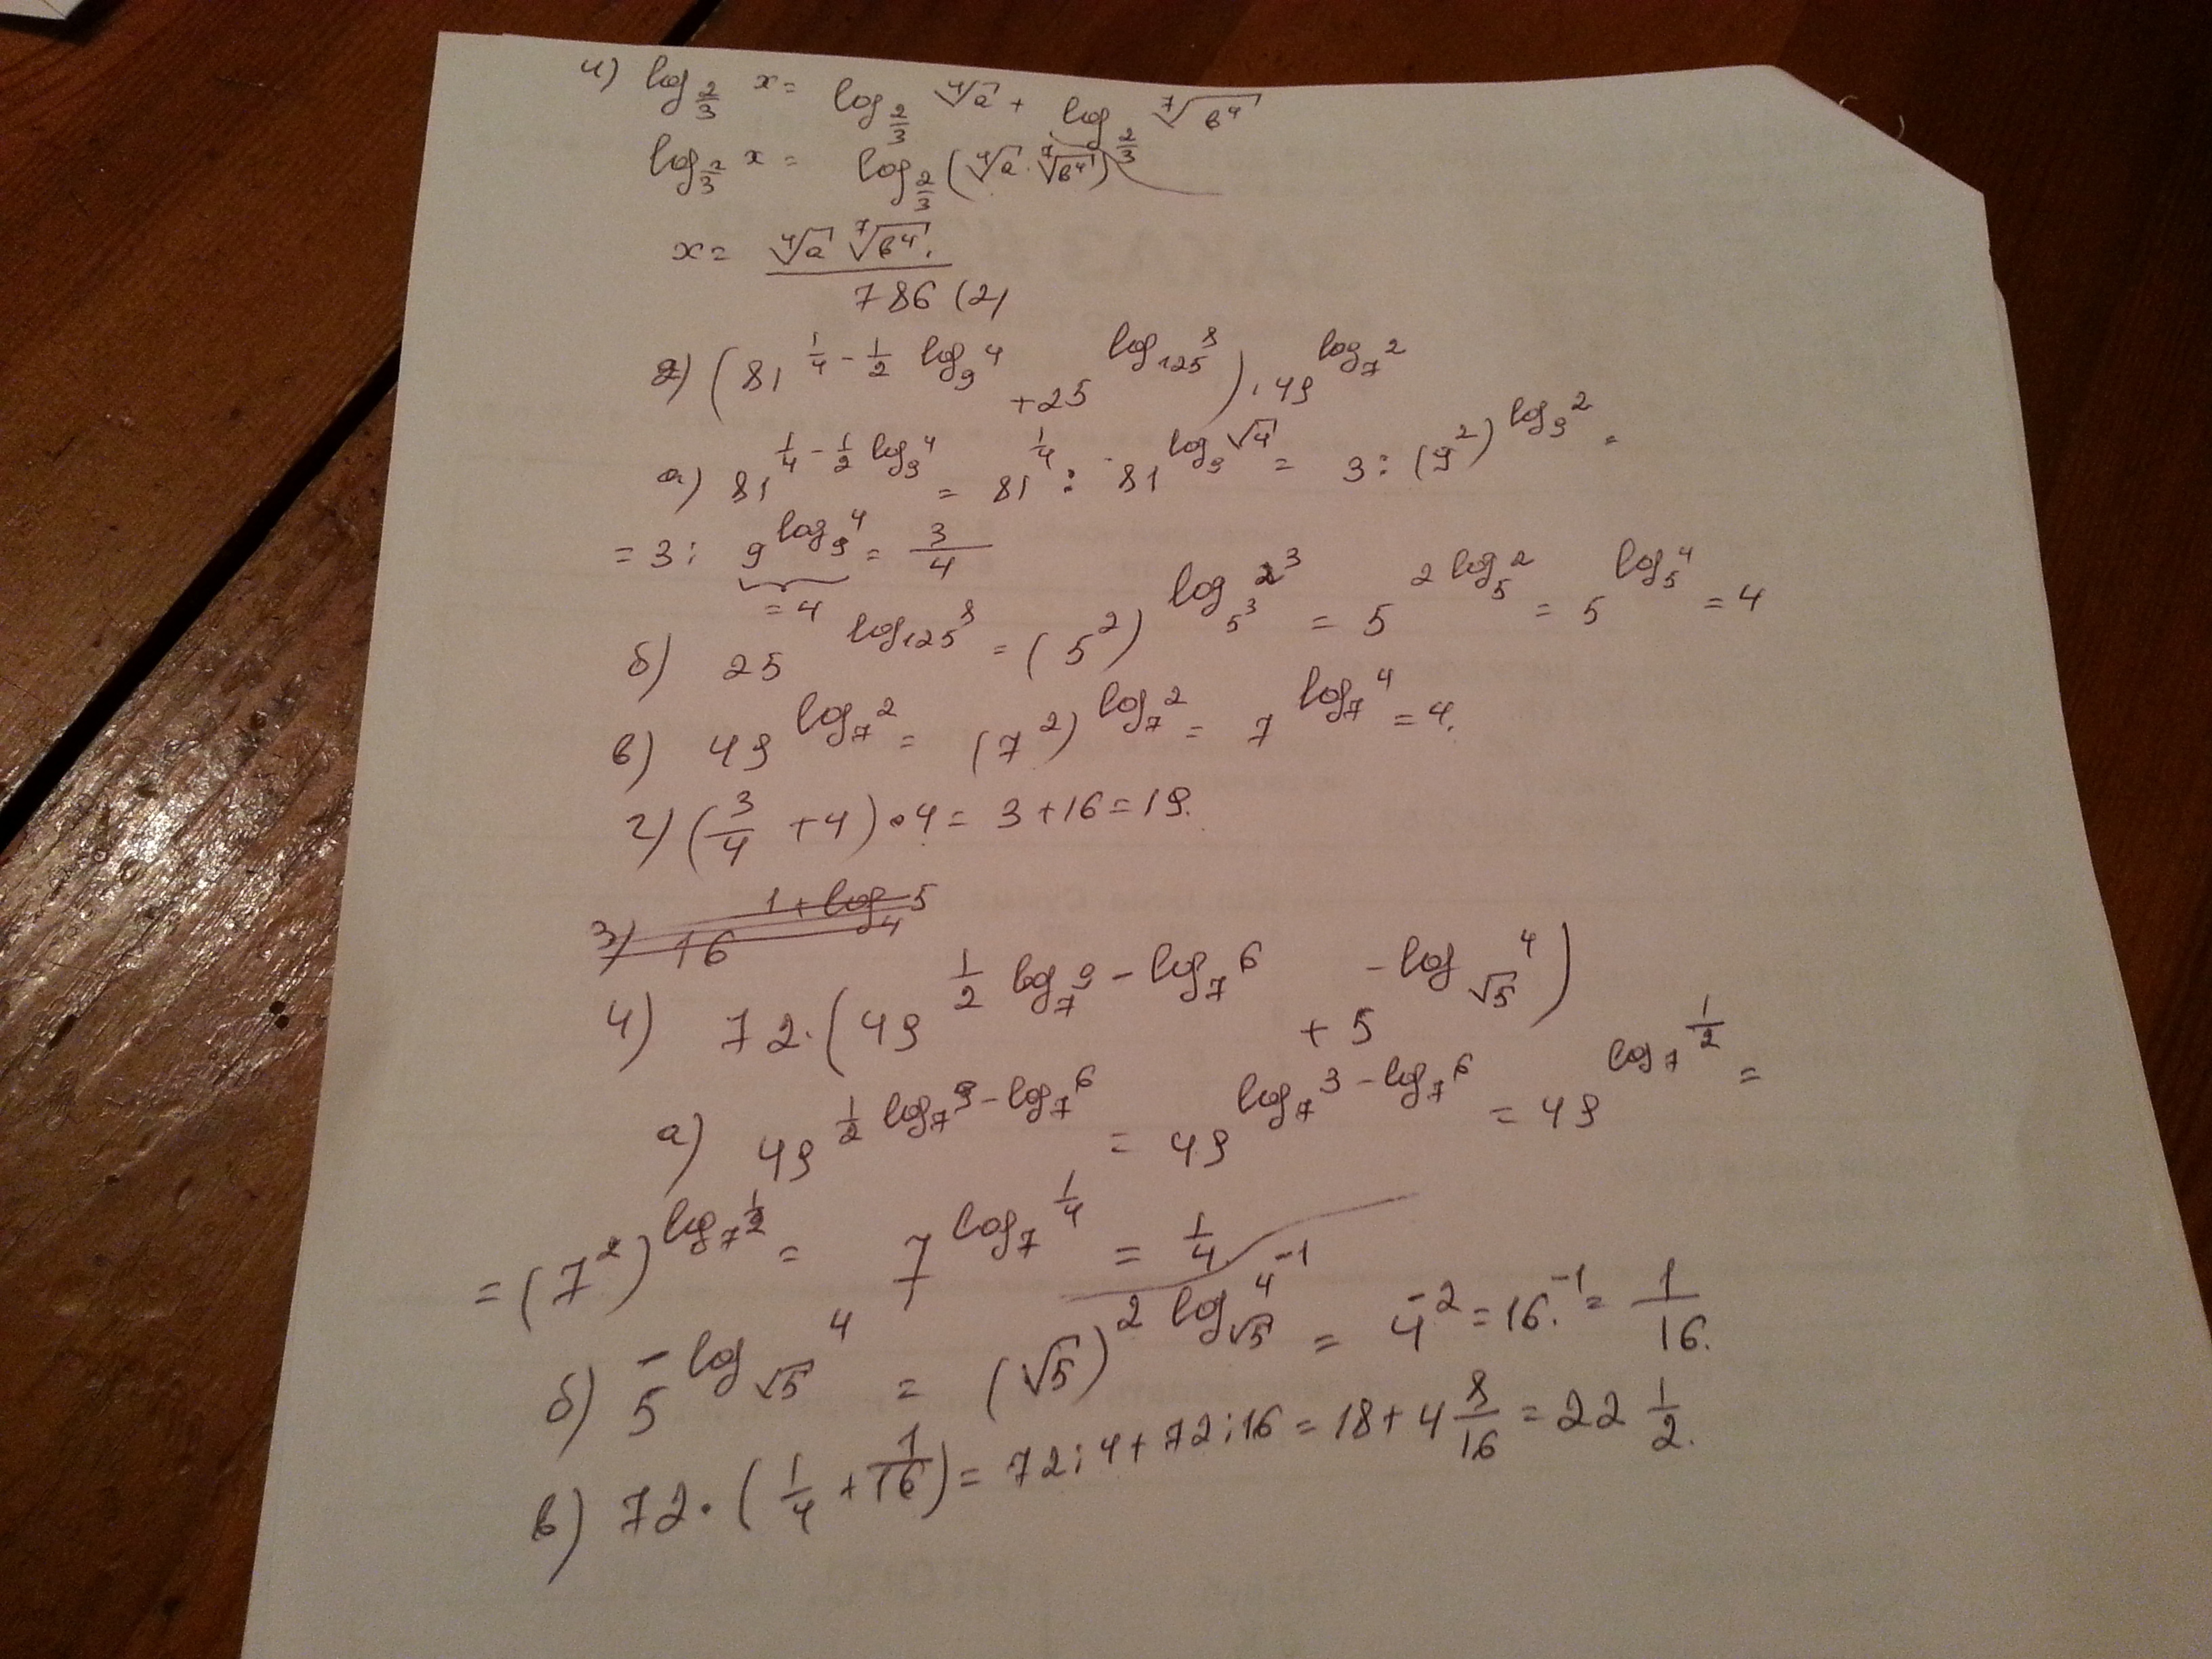 4) log_{2/3} x = log_{2/3} ⁴√a + log_{2/3} ⁷√b⁴
log_{2/3} x = log_{2/3} (⁴√a · ⁷√b⁴)
x = ⁴√a ⁷√b⁴.
786 (2)
2) (81^{1/4 - 1/2 log_9 4} + 25^{log_125 8}) · 49^{log_7 2}
а) 81^{1/4 - 1/2 log_9 4} = 81^{1/4} : 81^{log_9 √4} = 3 : (9²)^{log_9 2} =
= 3 : 9^{log_9 4} = 3/4
= 4
б) 25^{log_125 8} = (5²)^{log_{5³} 2³} = 5^{2 log_5 2} = 5^{log_5 4} = 4
в) 49^{log_7 2} = (7²)^{log_7 2} = 7^{log_7 4} = 4.
г) (3/4 + 4) · 4 = 3 + 16 = 19.
3) 16^{1 + log_4 5}
4) 72 · (49^{1/2 log_7 9 - log_7 6} + 5^{-log_{√5} 4})
а) 49^{1/2 log_7 9 - log_7 6} = 49^{log_7 3 - log_7 6} = 49^{log_7 1/2} =
= (7²)^{log_7 1/2} = 7^{log_7 1/4} = 1/4
б) 5^{-log_{√5} 4} = (√5)^{2 log_{√5} 4^{-1}} = 4^{-2} = 16^{-1} = 1/16.
в) 72 · (1/4 + 1/16) = 72 : 4 + 72 : 16 = 18 + 4 8/16 = 22 1/2.